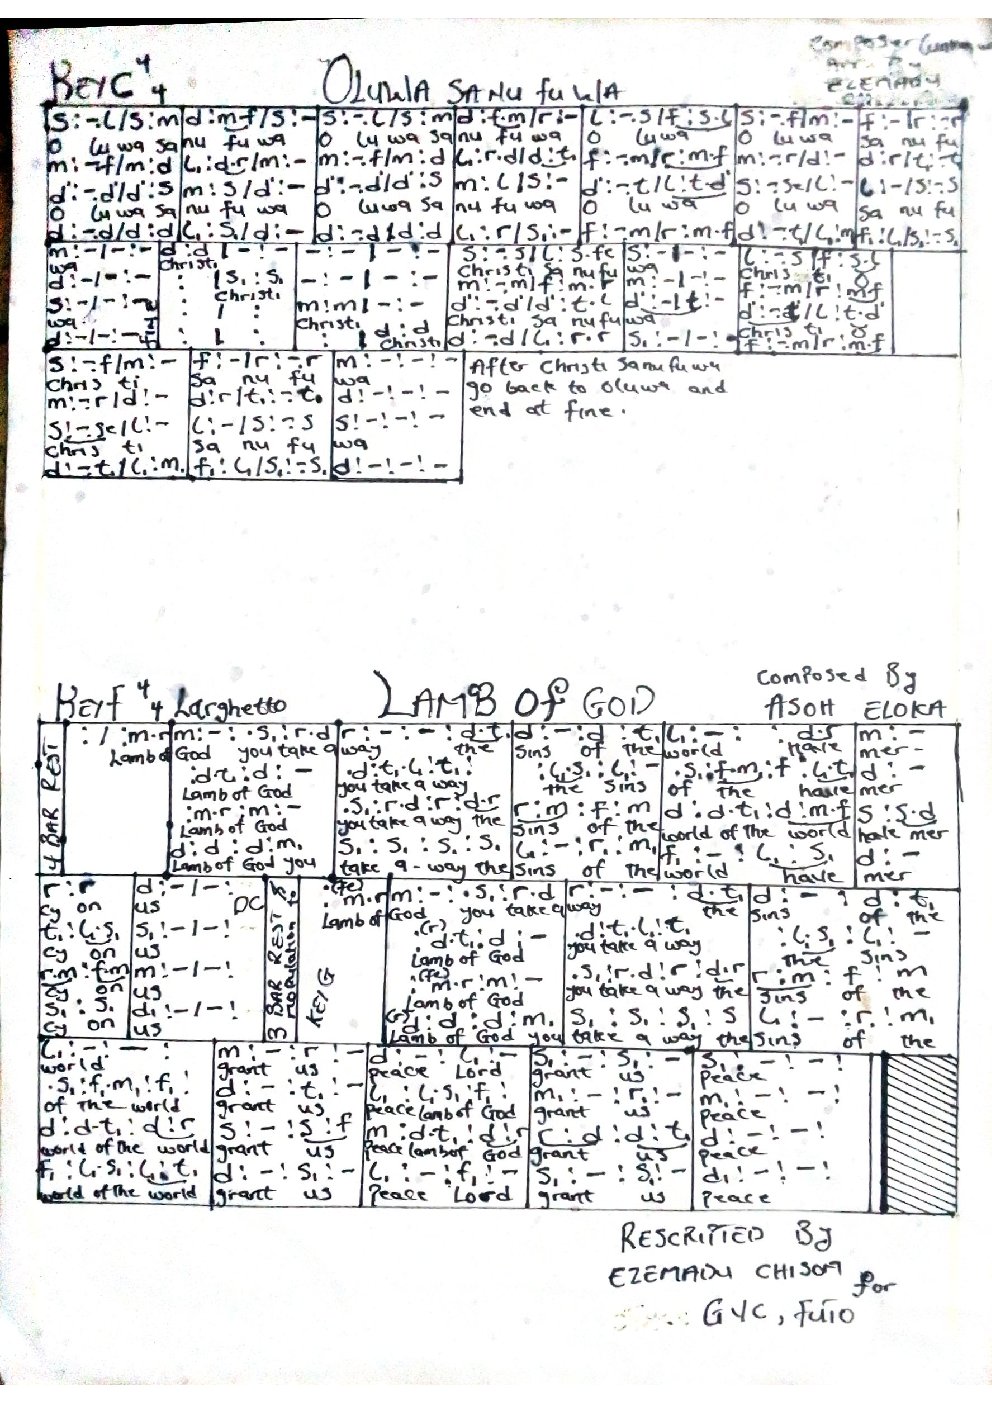 KEY C 4/4 OLUWA SANU FUWA
Composer
Arr. By
EZEMADU
s:-.l/s:m | d:m.f/s:- | s:-.l/s:m | d:f.m/r:- | l:-.s/f:s.l | s:-.f/m:- | f:-/r:-.r
O lu wa sa nu fu wa O lu wa sa nu fu wa O luwa O lu wa sa nu fu
m:-.f/m:d | l,:d.r/m:- | m:-.f/m:d | l,:r.d/d:t, | f:-.m/r:m.f | m:-.r/d:- | d:r/t,:-.t,
d':-.d/d':s | m:s/d':- | d':-.d/d':s | m:l/s:- | d':-.t/l:t.d' | s:-.se/l:- | l:-/s:-.s
O lu wa sa nu fu wa O luwa sa nu fu wa O lu wa O lu wa sa nu fu
d:-.d/d:d | l,:s,/d:- | d:-.d/d:d | l,:r/s,:- | f:-.m/r:m.f | d:-.t,/l,:m, | f,:l,/s,:-.s,
m:-/-:- | d:d/-:- | -:-/-:- | s:-.s/l:s.fe | s:-/-:- | l:-.s/f:s.l
wa Christi Christi sa nu fu wa Chris ti O
d:-/-:- | : /s,:s, | -:-/-:- | m:-.m/f:m.r | m:-/-:- | f:-.m/r:m.f
Christi
s:-/-:- | : / : | m:m/-:- | d':-.d'/d':t.l | d':-/t:- | d':-.t/l:t.d'
wa Christi Christi sa nu fu wa Chris ti O
d:-/-:- fine | : / : | : /d:d | d:-.d/l,:r.r | s,:-/-:- | f:-.m/r:m.f
Christi
s:-.f/m:- | f:-/r:-.r | m:-:-:-
Chris ti sa nu fu wa
m:-.r/d:- | d:r/t,:-.t, | d:-:-:-
s:-.se/l:- | l:-/s:-.s | s:-:-:-
Chris ti sa nu fu wa
d:-.t,/l,:m, | f,:l,/s,:-.s, | d:-:-:-
After Christi sanu fuwa
go back to oluwa and
end at fine.
KEY F 4/4 Larghetto LAMB OF GOD
Composed By
ASOH ELOKA
4 BAR REST | : / :m.r | m:-:.s,:r.d | r:-:-:d.t, | d:-:d:t, | l,:-: :d.r | m:-
Lamb of God you take away the sins of the world have mer-
.d:t,:d:- | .d:t,.l,:t,: | :l,.s,:l,:- | .s,:f,.m,:f,:l,.t, | d:-
Lamb of God you take a way the sins of the have mer
.m:r:m:- | .s,:r.d:r:d.r | r:m:f:m | d:d.t,:d:m.f | s:s.d
Lamb of God you take a way the sins of the world of the world have mer
d:d:d:m, | s,:s,:s,:s, | l,:-:r,:m, | f,:-:l,:s, | d:-
Lamb of God you take a-way the sins of the world have mer
r:r | d:-/-: DC | 3 BAR REST & modulation to KEY G | .(fe) m.r | m:-:.s,:r.d | r:-:-:d.t, | d:-:d:t,
cy on us Lamb of God you take away the sins of the
t,:l,.s, | s,:-/-: | (r) .d:t,:d:- | .d:t,.l,:t, | :l,.s,:l,:-
cy on us Lamb of God you take a way the sins
r.m:f.m | m:-/-: | (fe) m.r:m:- | .s,:r.d:r:d.r | r:m:f:m
cy on us Lamb of God you take a way the sins of the
s,:s, | d,:-/-: | (s) d:d:d:m, | s,:s,:s,:s | l,:-:r,:m,
cy on us Lamb of God you take a way the sins of the
l,:-:-: | m:-:r:- | d:-:l,:- | s,:-:s,:- | s,:-:-:
world grant us peace Lord grant us peace
.s,:f,.m,:f,: | d:-:t,:- | l,:l,.s,:f,: | m,:-:r,:- | m,:-:-:
of the world grant us peace lamb of God grant us peace
d:d.t,:d:r | s:-:s:f | m:d.t,:d:r | r:d:d:t, | d:-:-:
world of the world grant us peace lamb of God grant us peace
f,:l,.s,:l,:t, | d:-:s,:- | l,:-:f,:- | s,:-:s,:- | d,:-:-:
world of the world grant us peace Lord grant us peace
RESCRIPTED By
EZEMADU CHISOM
for
GYC, FUTO